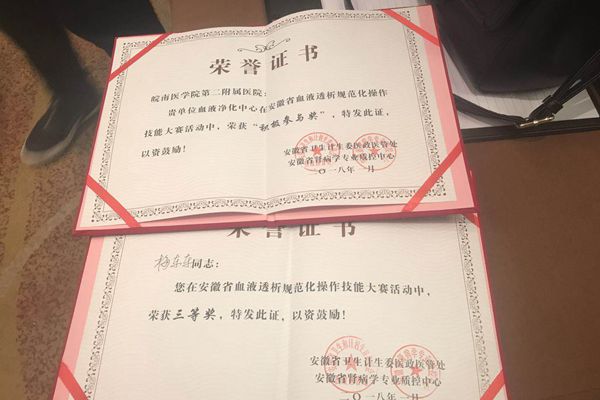 荣誉证书
皖南医学院第二附属医院：
贵单位血液净化中心在安徽省血液透析规范化操作
技能大赛活动中，荣获“积极参与奖”，特发此证，
以资鼓励！
安徽省卫生计生委医政医管处
安徽省肾病学专业质控中心
二〇一八年一月
荣誉证书
同志：
您在安徽省血液透析规范化操作技能大赛活动中，
荣获三等奖，特发此证，以资鼓励！
安徽省卫生计生委医政医管处
安徽省肾病学专业质控中心
二〇一八年一月